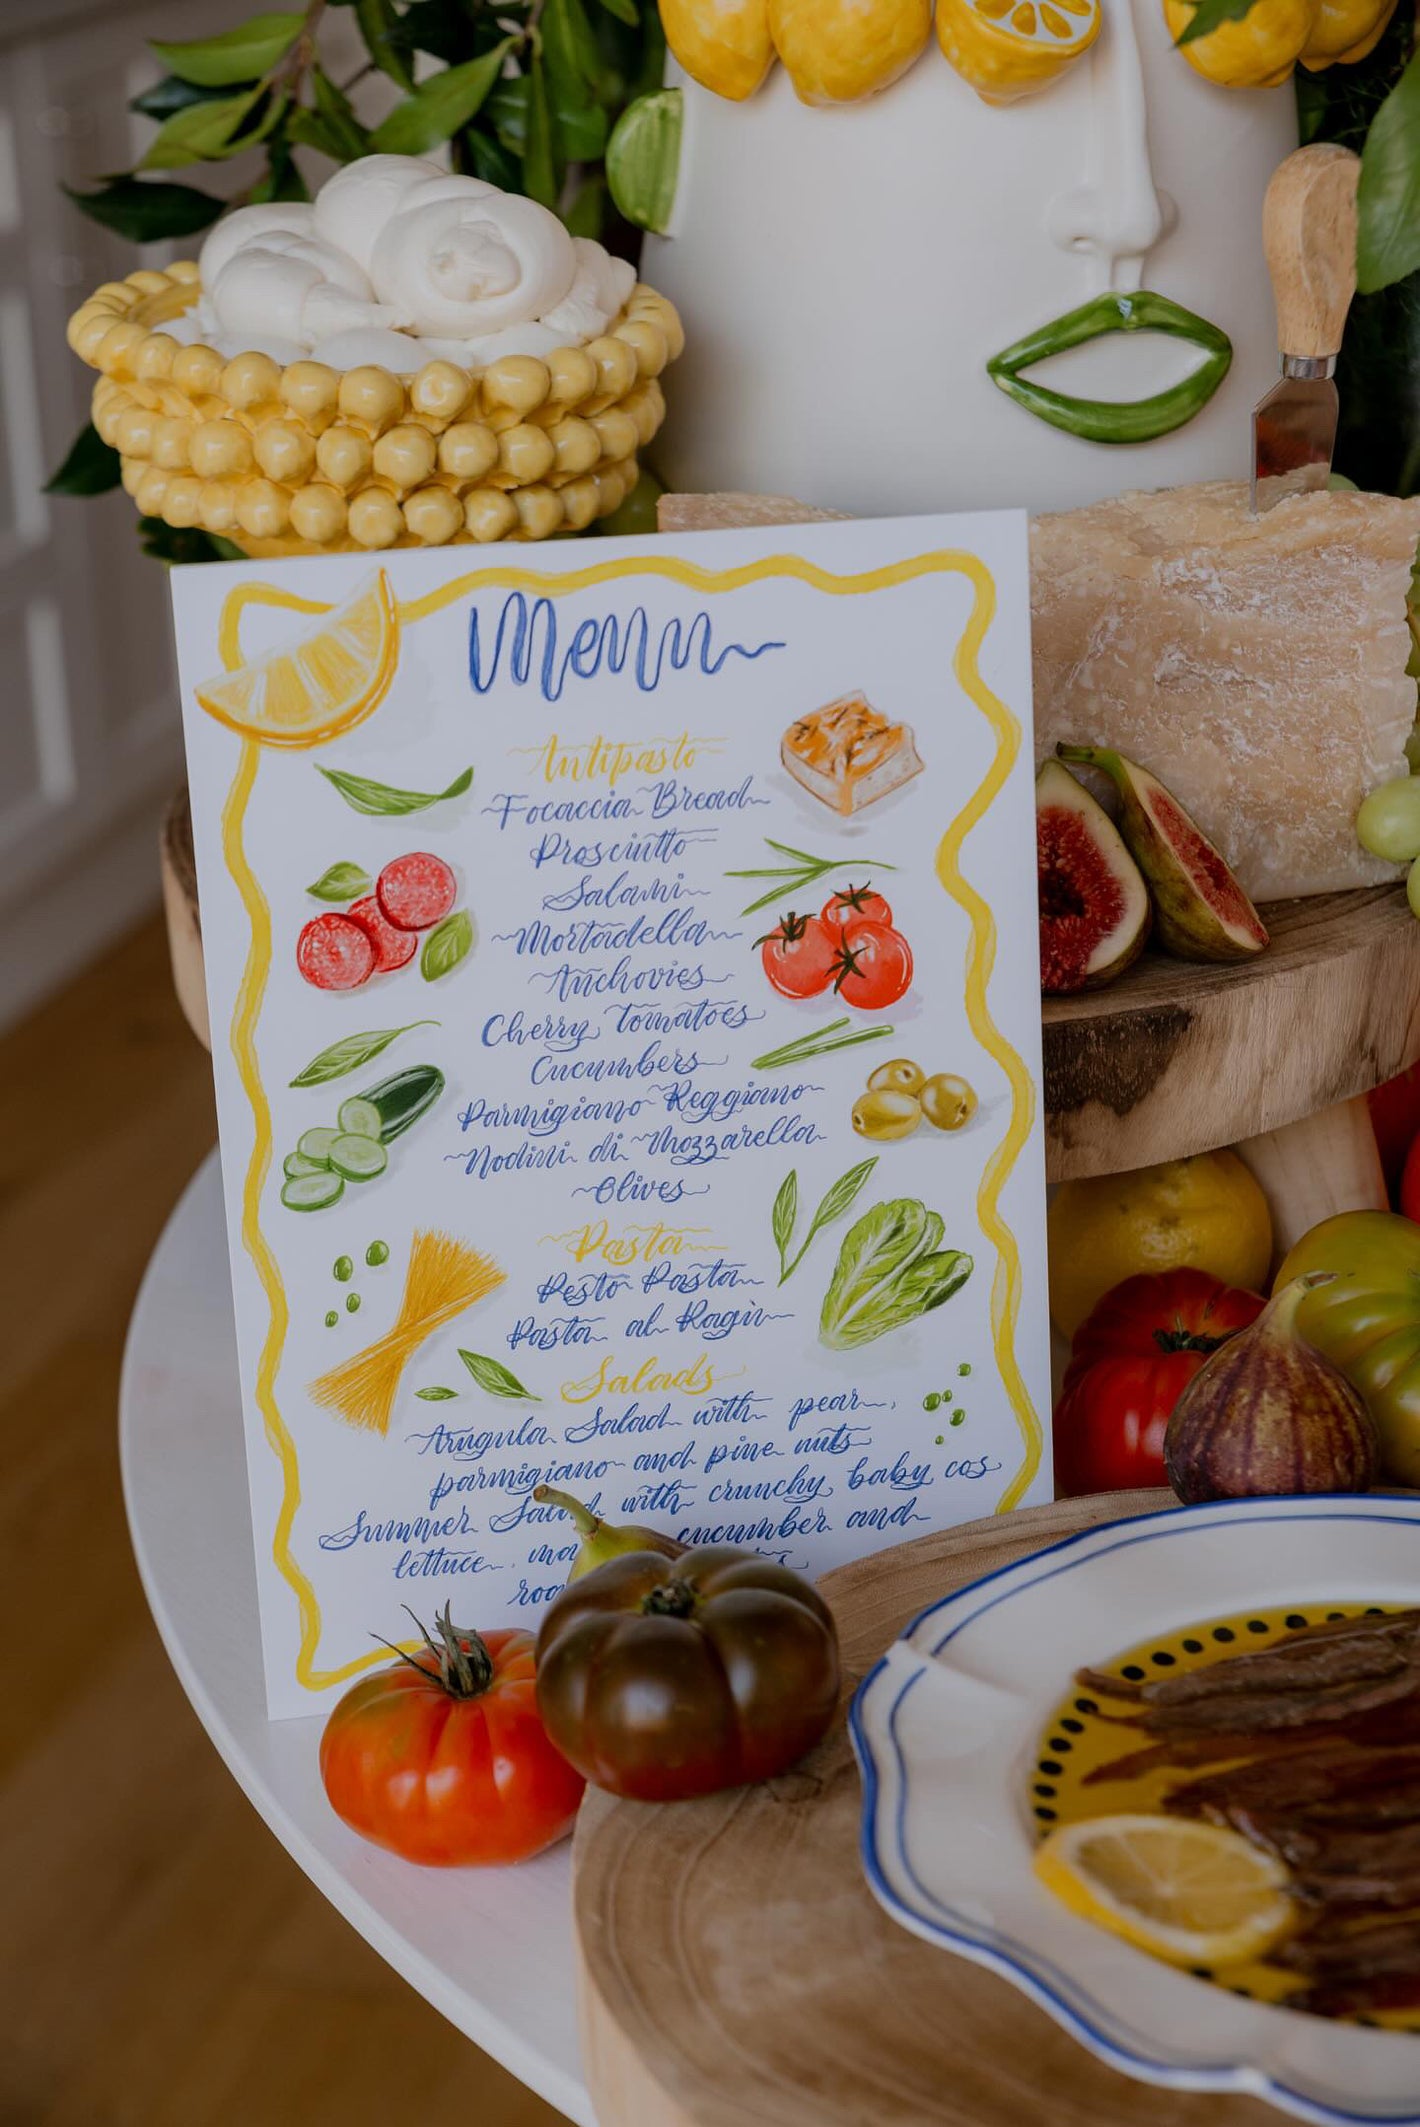 Menu
Antipasto
Focaccia Bread
Prosciutto
Salami
Mortadella
Anchovies
Cherry tomatoes
Cucumbers
Parmigiano Reggiano
Nodini di Mozzarella
Olives
Pasta
Pesto Pasta
Pasta al Ragù
Salads
Arugula Salad with pear,
parmigiano and pine nuts
Summer Salad with crunchy baby cos
lettuce, cucumber and